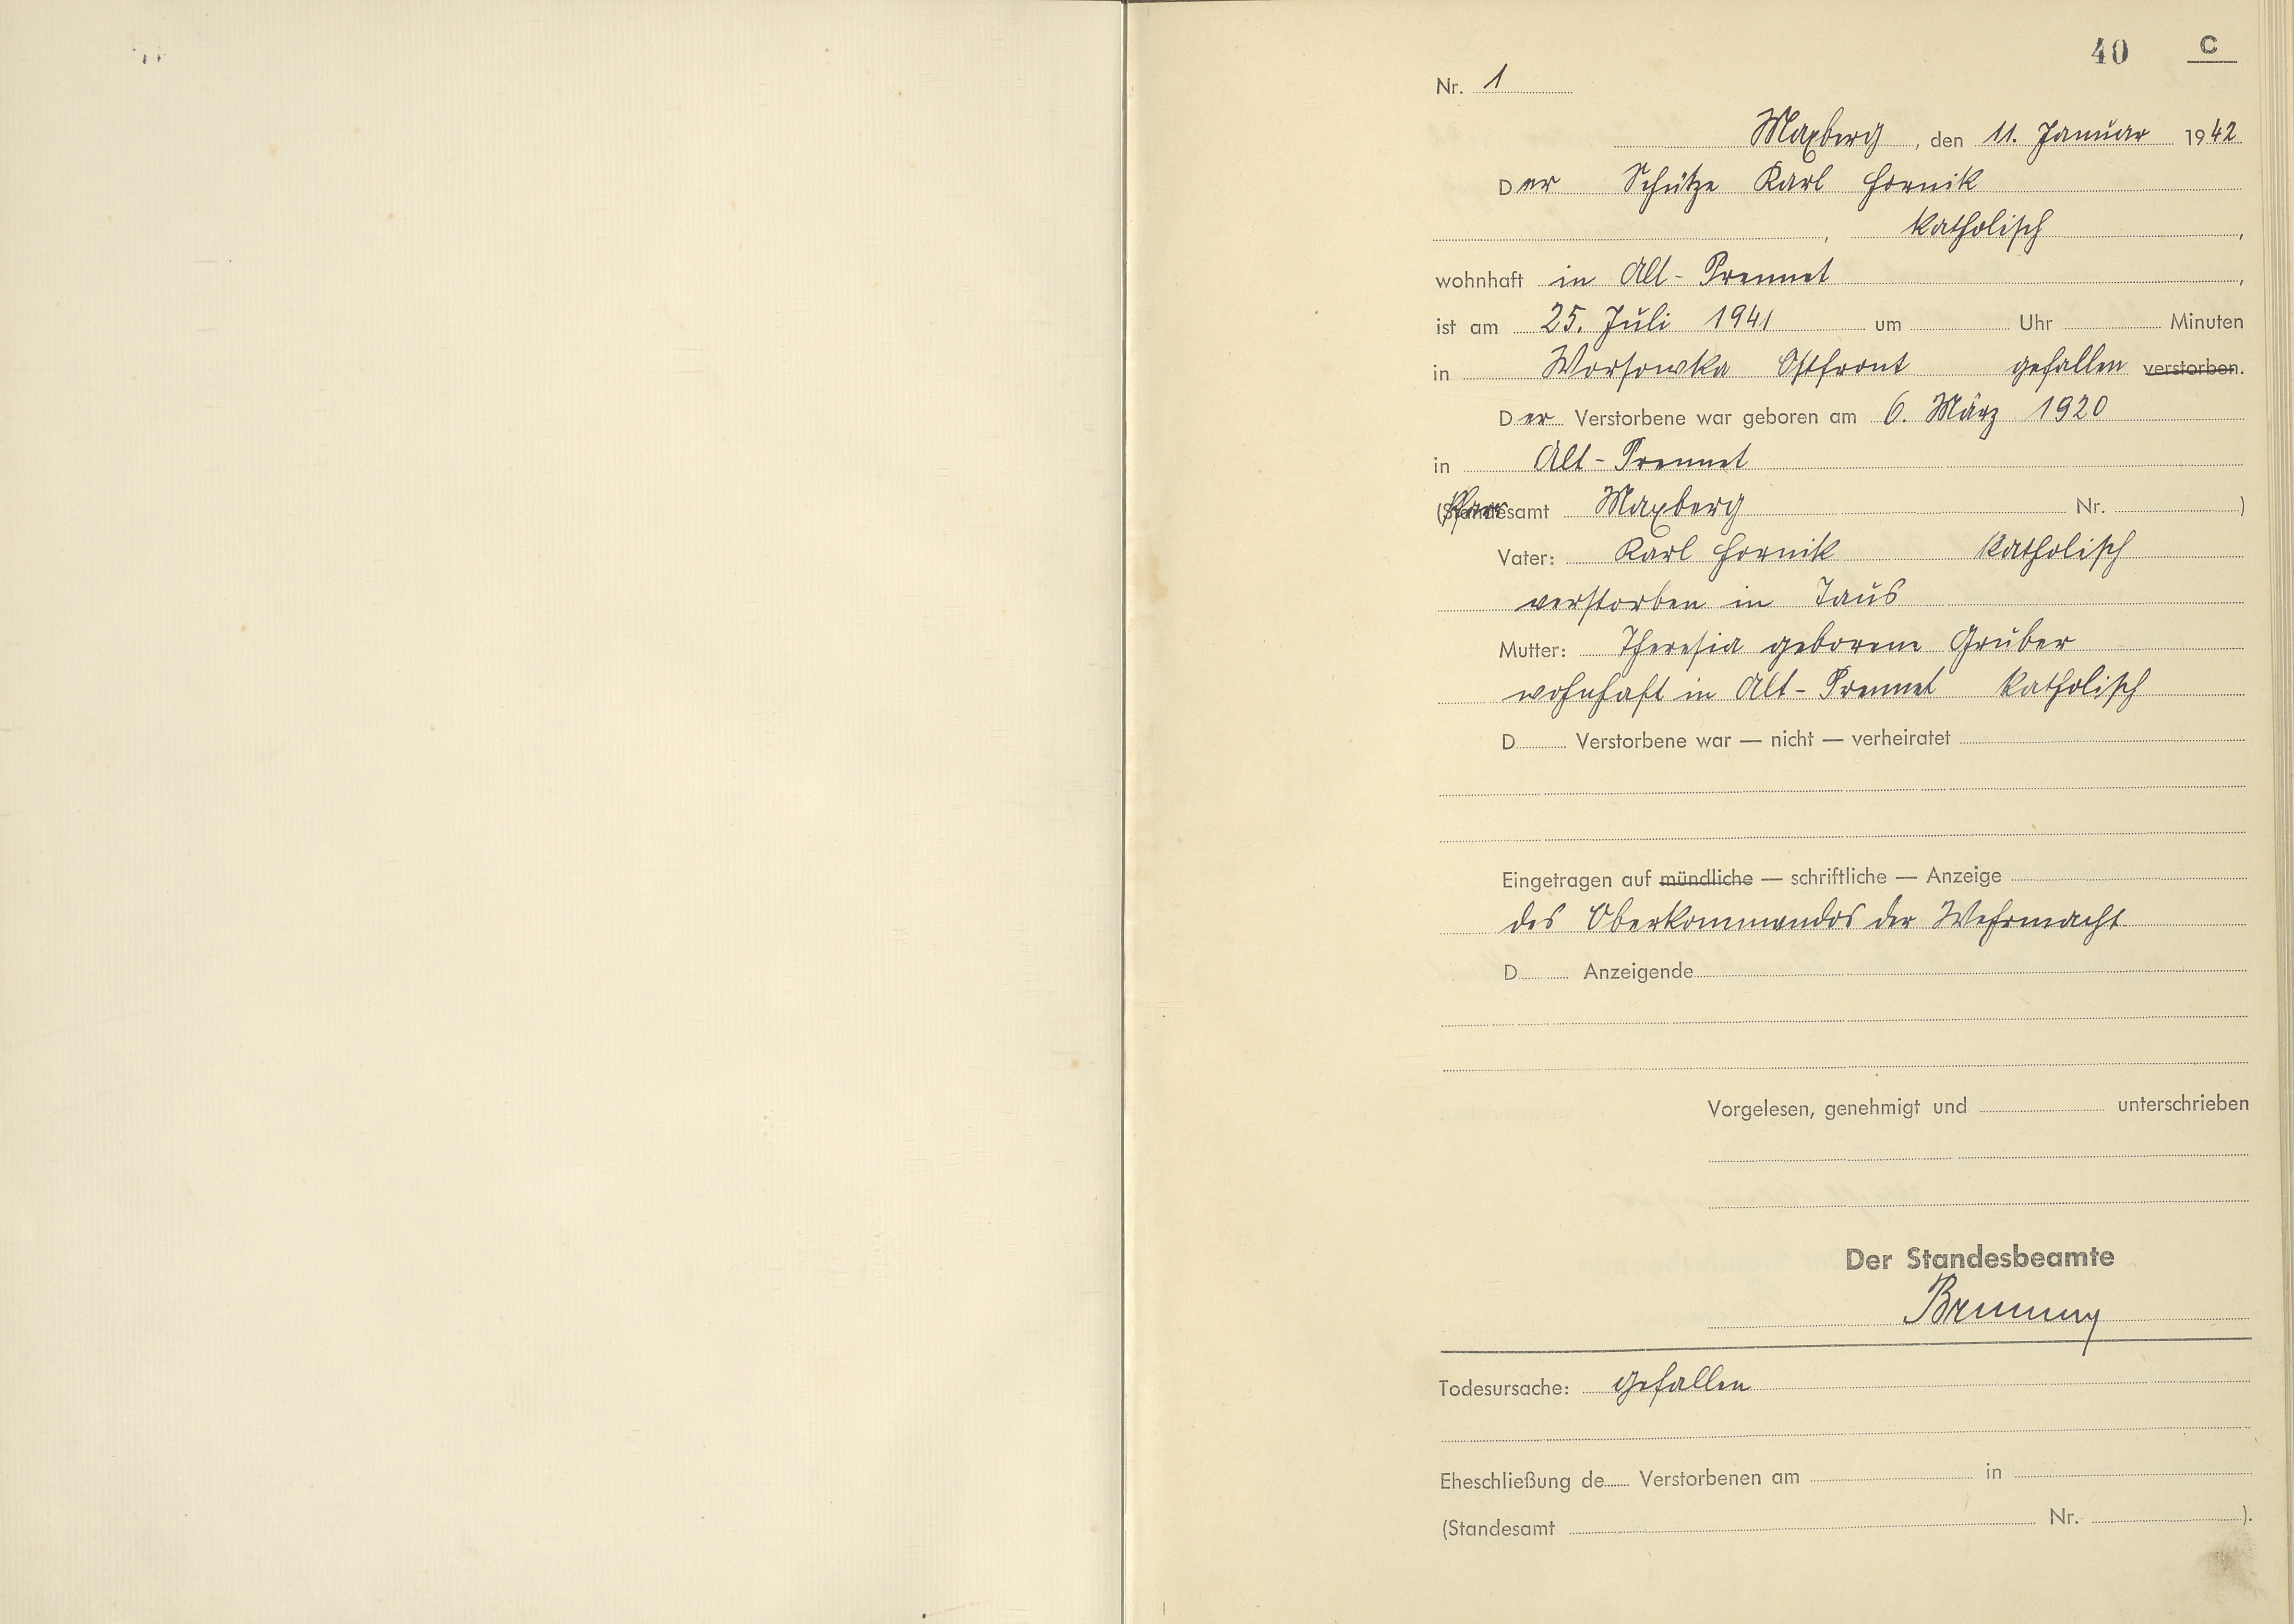 40 C
Nr. 1
Maxberg, den 11. Januar 1942
Der Schütze Karl Hornik
, katholisch,
wohnhaft in Alt-Prennet,
ist am 25. Juli 1941 um Uhr Minuten
in Worsowka Ostfront gefallen verstorben.
Der Verstorbene war geboren am 6. März 1920
in Alt-Prennet
(Pfarramt Maxberg Nr. )
Vater: Karl Hornik katholisch
verstorben in Taus
Mutter: Theresia geborene Gruber
wohnhaft in Alt-Prennet katholisch
D Verstorbene war — nicht — verheiratet
Eingetragen auf mündliche — schriftliche — Anzeige
des Oberkommandos der Wehrmacht
D Anzeigende
Vorgelesen, genehmigt und unterschrieben
Der Standesbeamte
Todesursache: gefallen
Eheschließung de Verstorbenen am in
(Standesamt Nr. ).